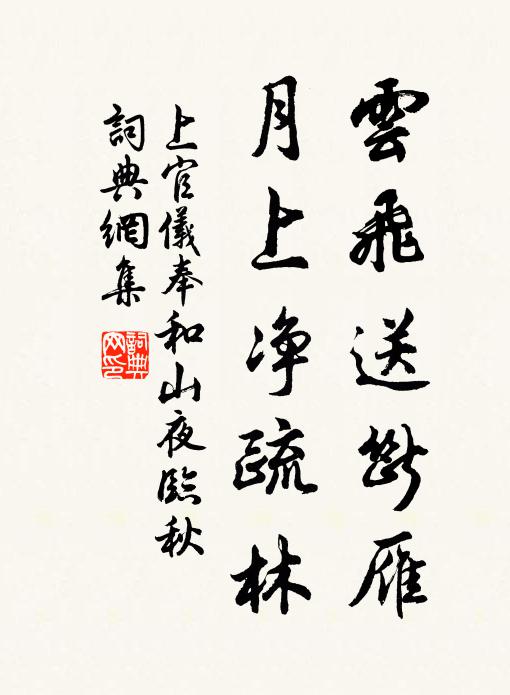 雲飛送斷雁
月上净疏林
上官儀奉和山夜臨秋
詞典網集
詞典网印